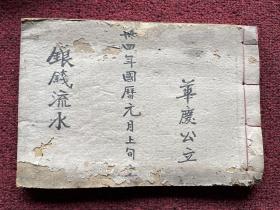 華慶公立
卅四年國曆元月上旬
銀錢流水